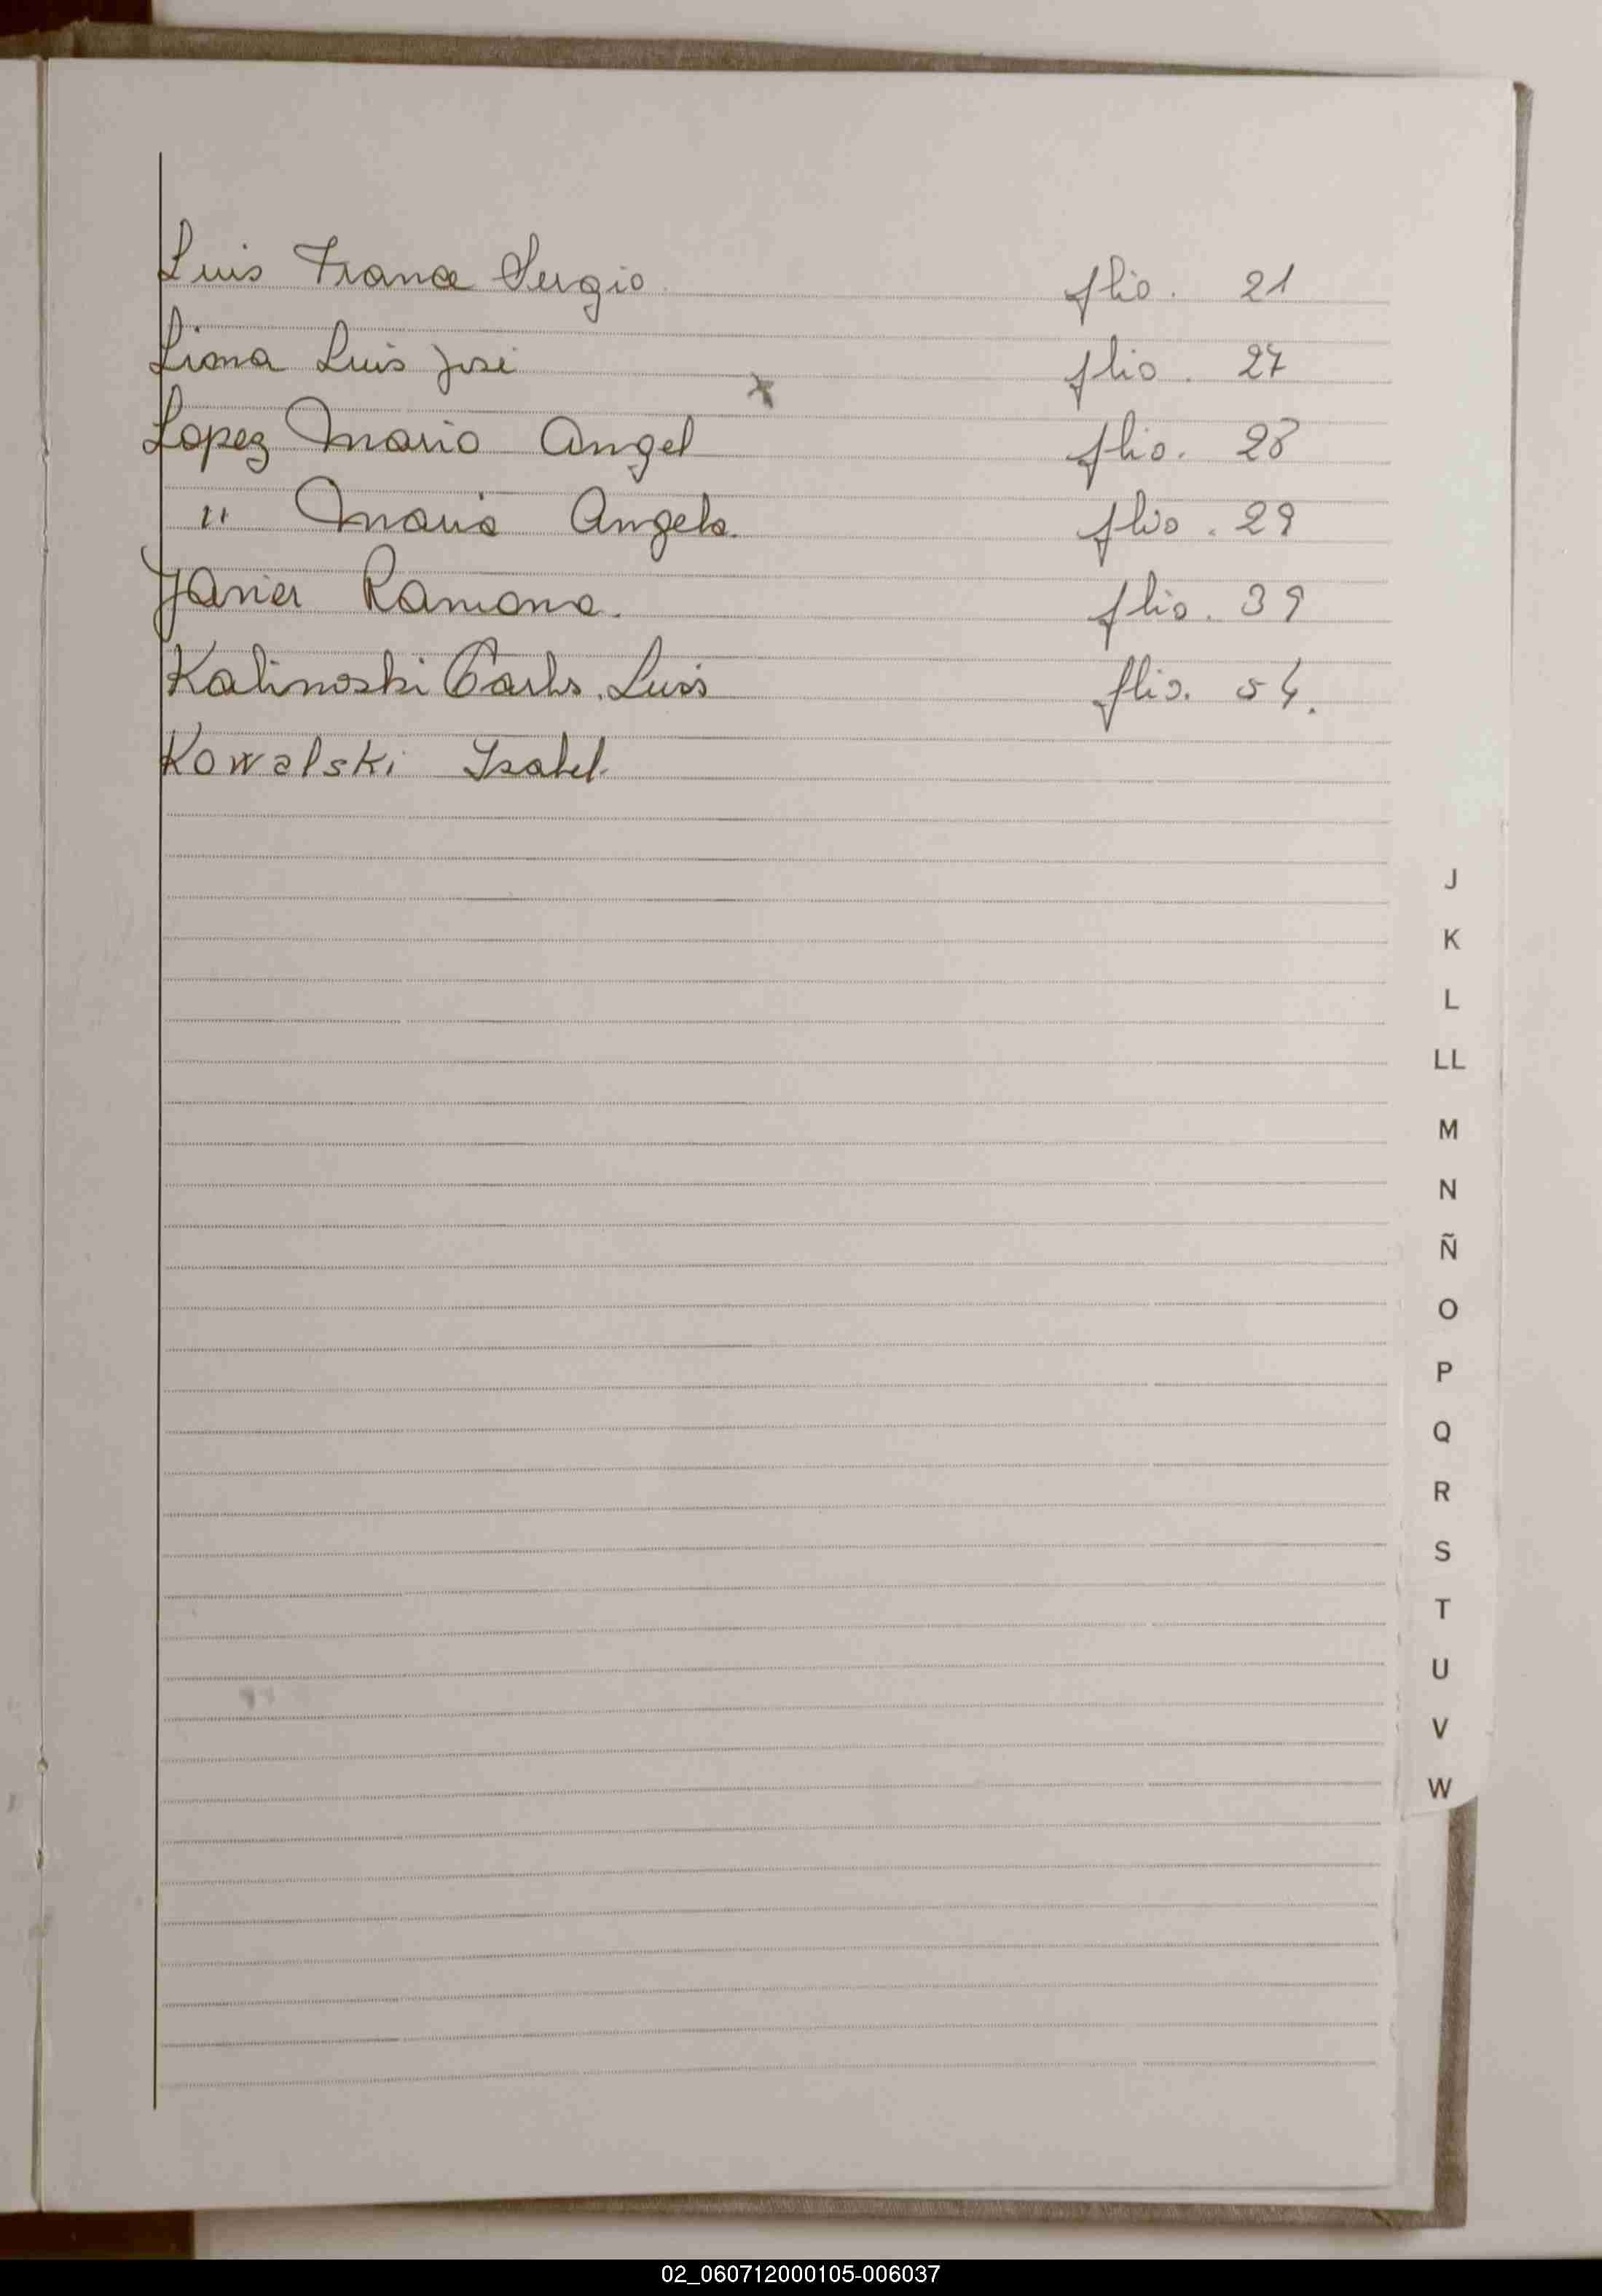 Luis Franco Sergio flio. 21
Liona Luis José flio. 27
Lopez Mario Angel flio. 28
" Maria Angela. flio. 29
Javier Ramona. flio. 39
Kalinoski Carlos Luis flio. 54.
Kowalski Isabel.
J
K
L
LL
M
N
Ñ
O
P
Q
R
S
T
U
V
W
02_060712000105-006037